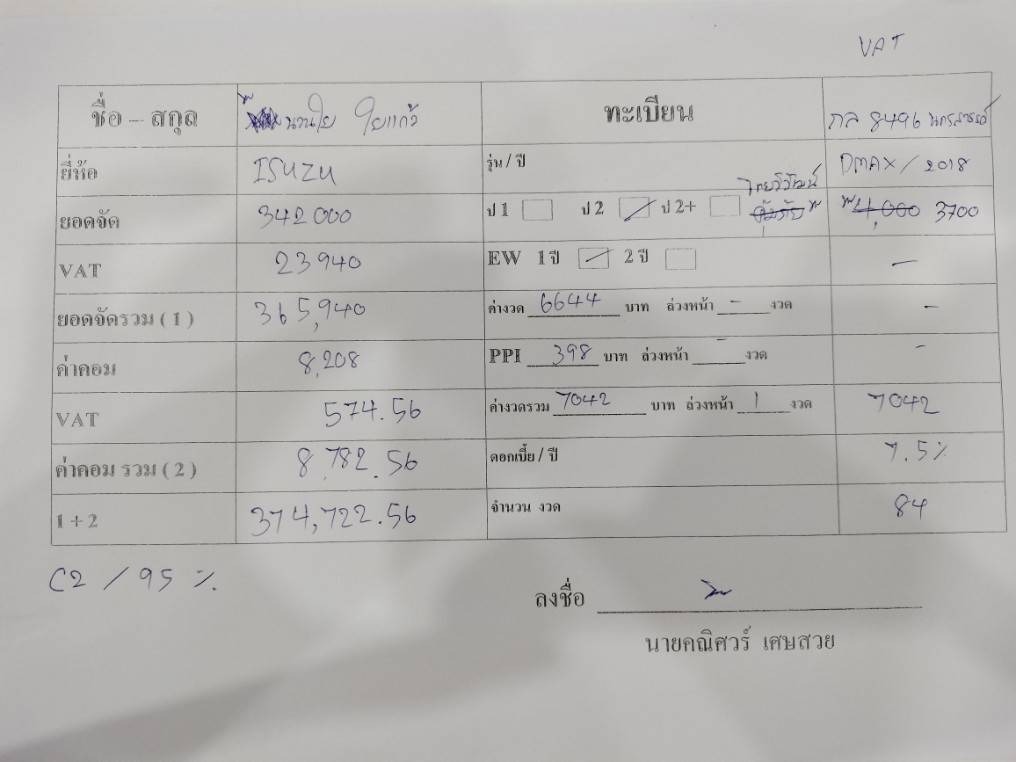 VAT
ชื่อ - สกุล นานใย ใยแก้ว ทะเบียน กล 8496 นครสวรรค์
ยี่ห้อ ISUZU รุ่น / ปี DMAX / 2018
ยอดจัด 342 000 ป 1 ป 2 ป 2+ ไทยวิวัฒน์ คุ้มภัย 4,000 3700
VAT 23 940 EW 1 ปี 2 ปี —
ยอดจัดรวม ( 1 ) 365,940 ค่างวด 6644 บาท ล่วงหน้า - งวด -
ค่าคอม 8,208 PPI 398 บาท ล่วงหน้า - งวด -
VAT 574.56 ค่างวดรวม 7042 บาท ล่วงหน้า 1 งวด 7042
ค่าคอม รวม ( 2 ) 8,782.56 ดอกเบี้ย / ปี 7.5%
1 + 2 374,722.56 จำนวน งวด 84
C2 / 95 %
ลงชื่อ
นายคณิศวร์ เศษสวย